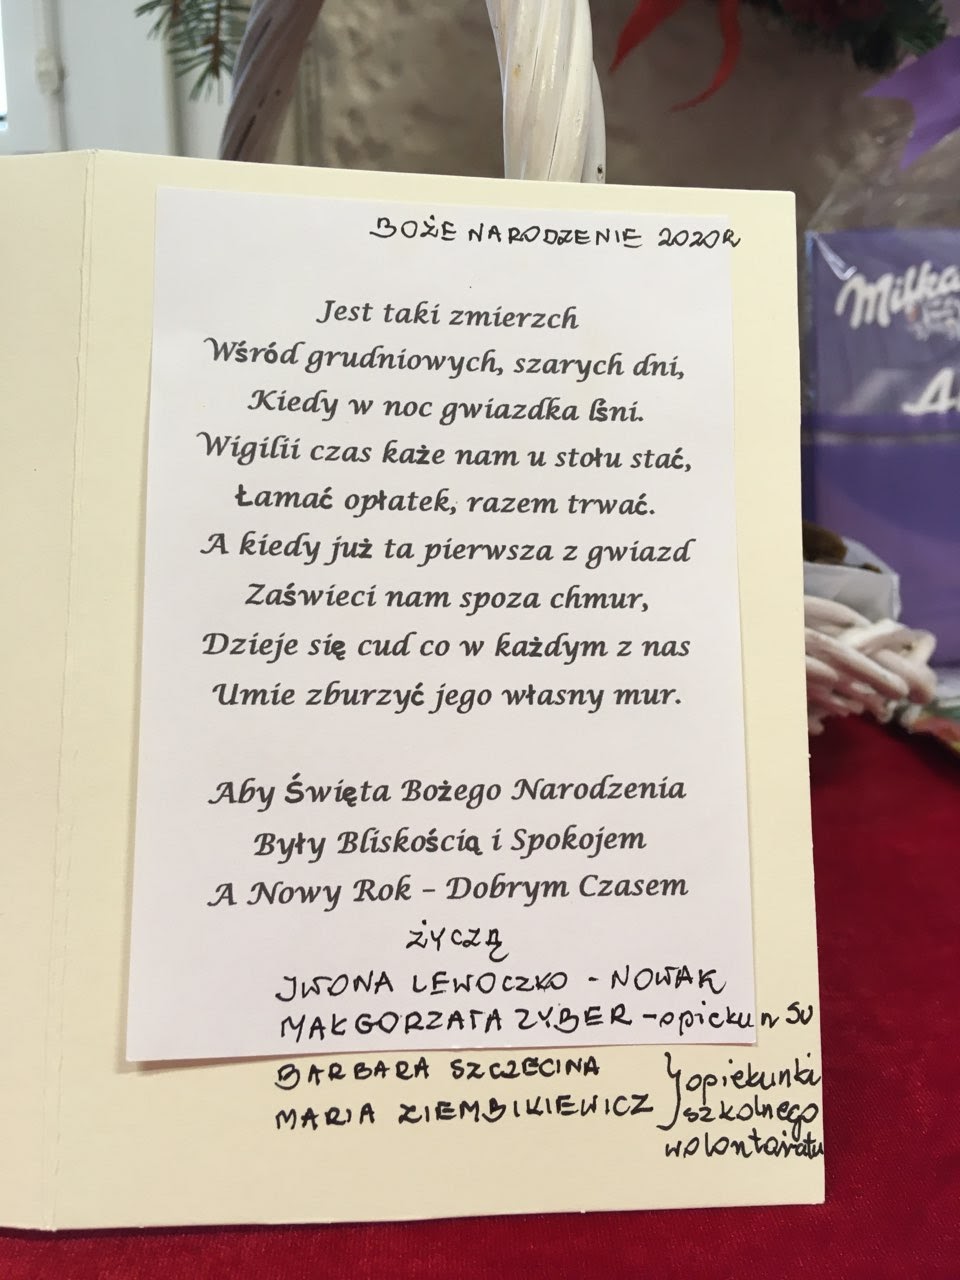 BOŻE NARODZENIE 2020R
Jest taki zmierzch
Wśród grudniowych, szarych dni,
Kiedy w noc gwiazdka lśni.
Wigilii czas każe nam u stołu stać,
Łamać opłatek, razem trwać.
A kiedy już ta pierwsza z gwiazd
Zaświeci nam spoza chmur,
Dzieje się cud co w każdym z nas
Umie zburzyć jego własny mur.
Aby Święta Bożego Narodzenia
Były Bliskością i Spokojem
A Nowy Rok – Dobrym Czasem
ŻYCZĄ
IWONA LEWOCZKO - NOWAK
MAŁGORZATA ZYBER - opiekun SU
BARBARA SZCZECINA
MARIA ZIEMBIKIEWICZ } opiekunki
szkolnego
wolontariatu
Milka